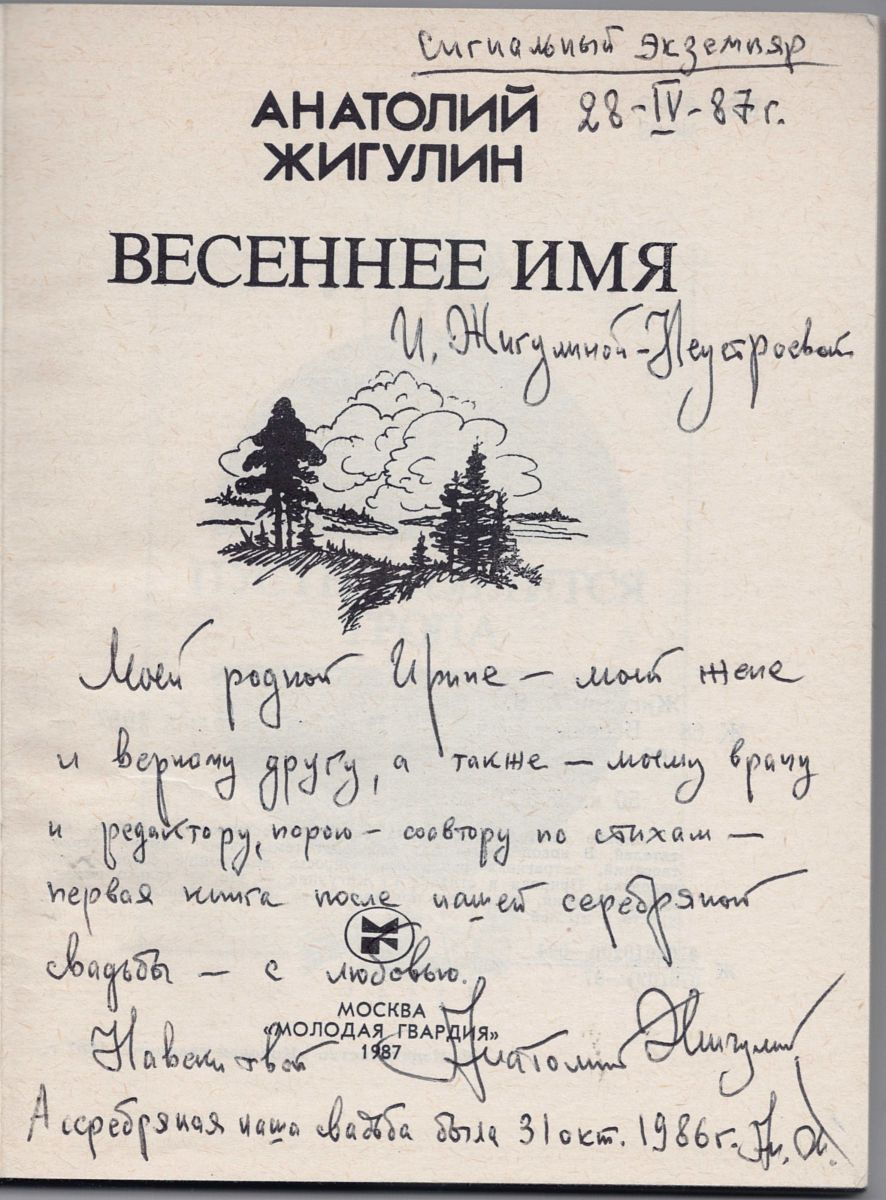 Сигнальный экземпляр
АНАТОЛИЙ 28-IV-87г.
ЖИГУЛИН
ВЕСЕННЕЕ ИМЯ
И. Жигулиной-Неустроевой
Моей родной Ирине – моей жене
и верному другу, а также – моему врачу
и редактору, порою – соавтору по стихам –
первая книга после нашей серебряной
свадьбы – с любовью.
МОСКВА
«МОЛОДАЯ ГВАРДИЯ»
1987
Навеки твой Анатолий Жигулин
А серебряная наша свадьба была 31 окт. 1986г. Ан. Ж.